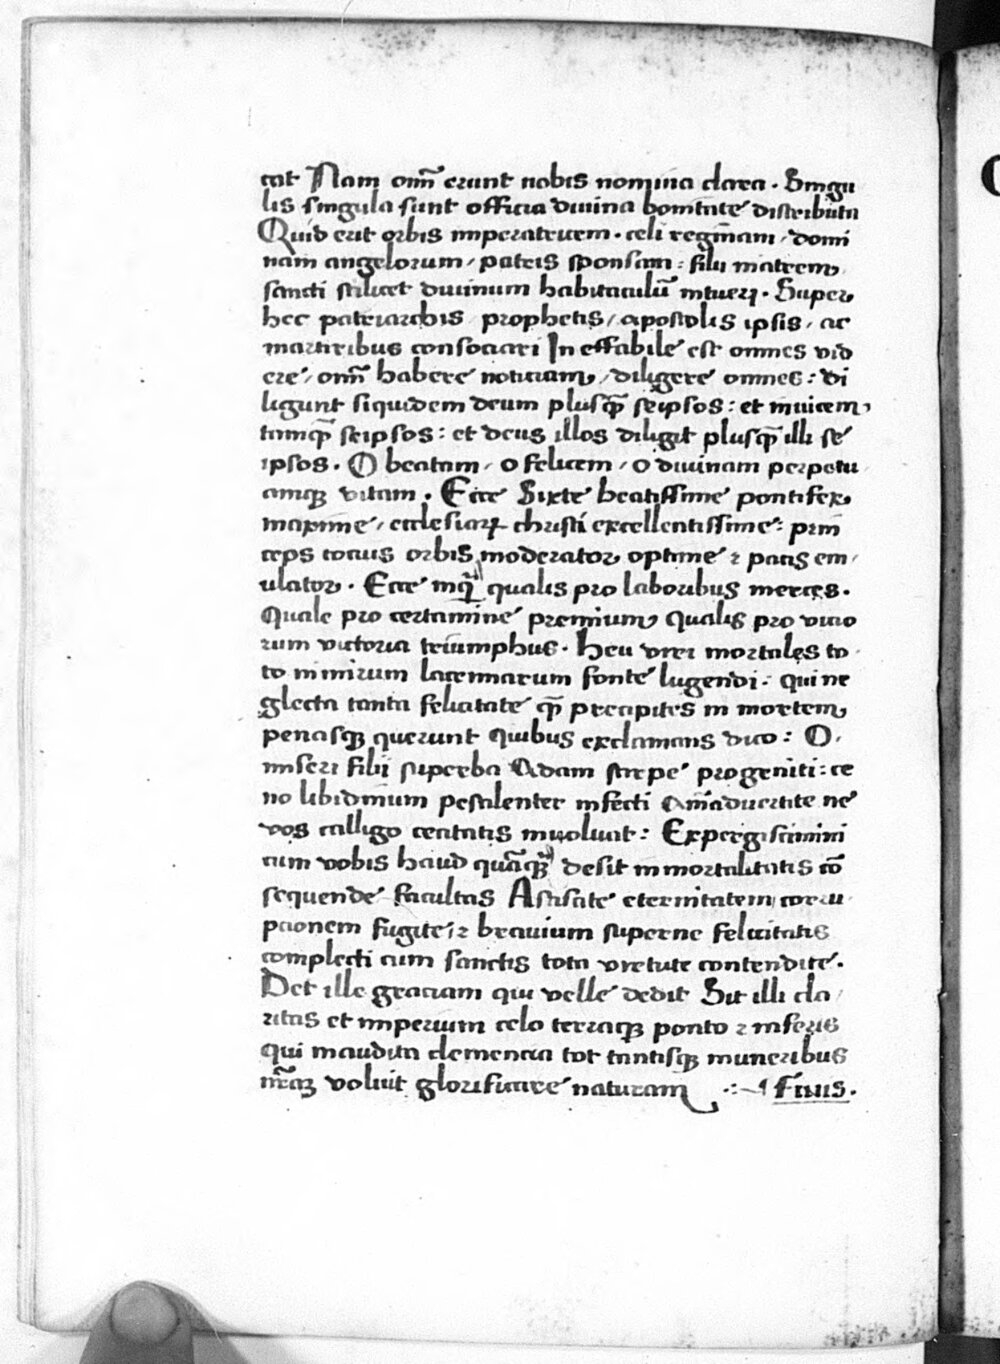 cat Nam om̄ erunt nobis nomina clara . Singu
lis singula sunt officia diuina bonitate distributa
Quid erit orbis imperatricem . celi regīnam / domi
nam angelorum / patris sponsam : filii matrem
sancti scilicet diuinum habitaculū intueri . Super
hec patriarchis / prophetis / apostolis ipsis / ac
martiribus consociari Ineffabile est omnes vid
ere / om̄ habere noticiam / diligere omnes : di
ligunt siquidem deum plusq̄ seipsos : et inuicem
tamq̄ seipsos : et deus illos diligit plusq̄ illi se
ipsos . O beatam / o felicem / o diuinam perpetu
amqꝫ vitam . Ecce Sixte beatissime pontifex
maxime / ecclesiaꝝ christi excellentissime : prin
ceps tocius orbis moderator optime ⁊ pacis em
ulator . Ecce inq̄ qualis pro laboribus merces .
Quale pro certamine premium Qualis pro vicio
rum victoria triumphus . heu vrei mortales to
to nimirum lacrimarum fonte lugendi . qui ne
glecta tanta felicitate q̄ precipites in mortem
penasqꝫ querunt Quibus exclamans dico : O
miseri filii superba Adam stirpe progeniti : ce
no libidinum pestilenter infecti Aīmaduertite ne
vos calligo cecitatis inuoluat : Expergiscimini
cum vobis haud quāqꝫ desit inmortalitatis cō
sequende facultas Assissate eternitatem corru
pcionem fugite ⁊ brauium superne felicitatis
complecti cum sanctis tota vretute contendite .
Det ille graciam qui velle dedit Sit illi cla
ritas et imperium celo terraqꝫ ponto ⁊ inferis
qui inaudita clemencia tot tantisqꝫ muneribus
nr̄aꝫ voluit glorificare naturam Finis .